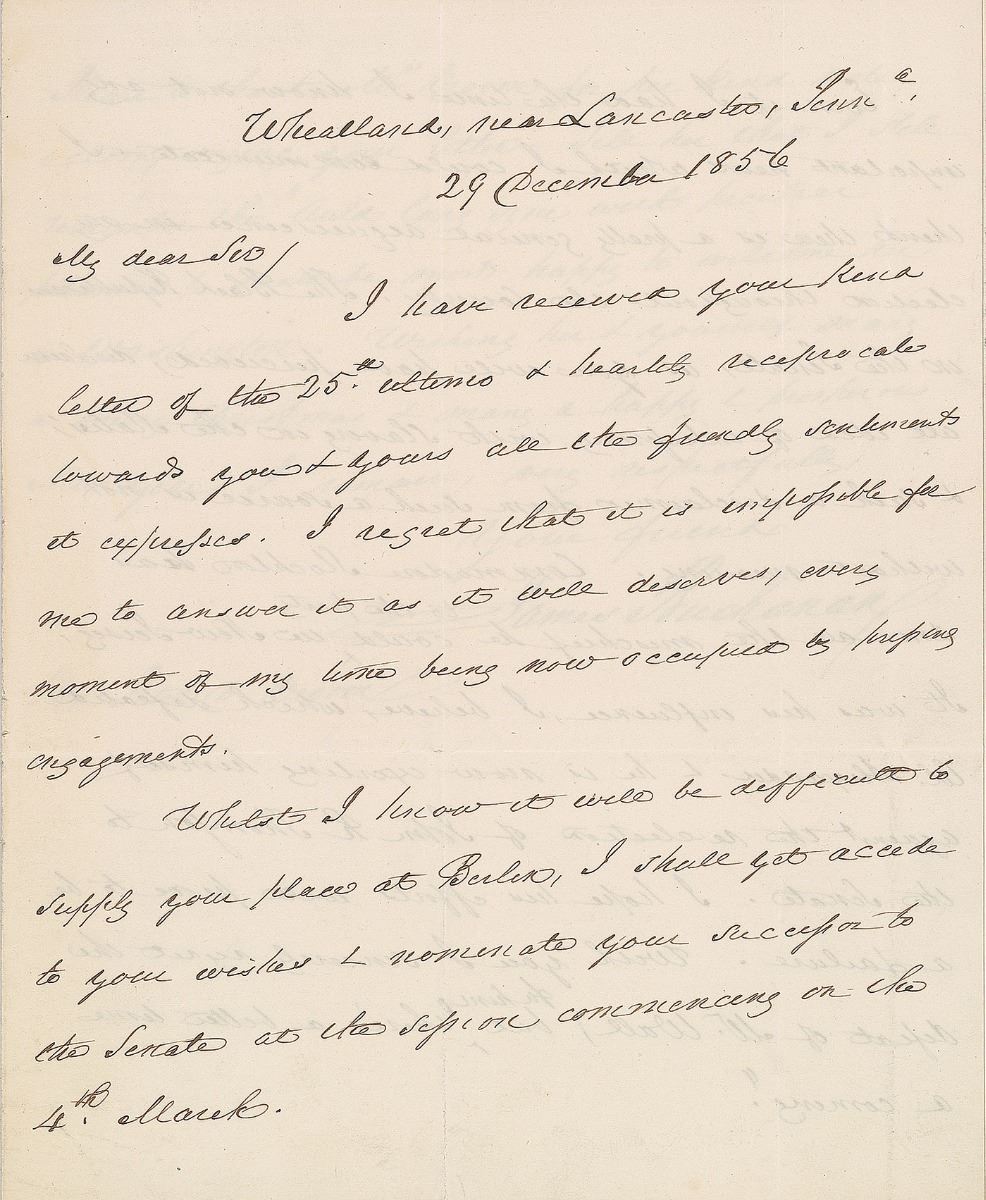 Wheatland, near Lancaster, Penn.a
29 December 1856
My dear Sir/
I have received your kind
letter of the 25.th ultimo & heartily reciprocate
towards you & yours all the friendly sentiments
it expresses. I regret that it is impossible for
me to answer it as it well deserves, every
moment of my time being now occupied by pressing
engagements.
Whilst I know it will be difficult to
supply your place at Berlin, I shall yet accede
to your wishes & nominate your successor to
the Senate at the session commencing on the
4.th March.